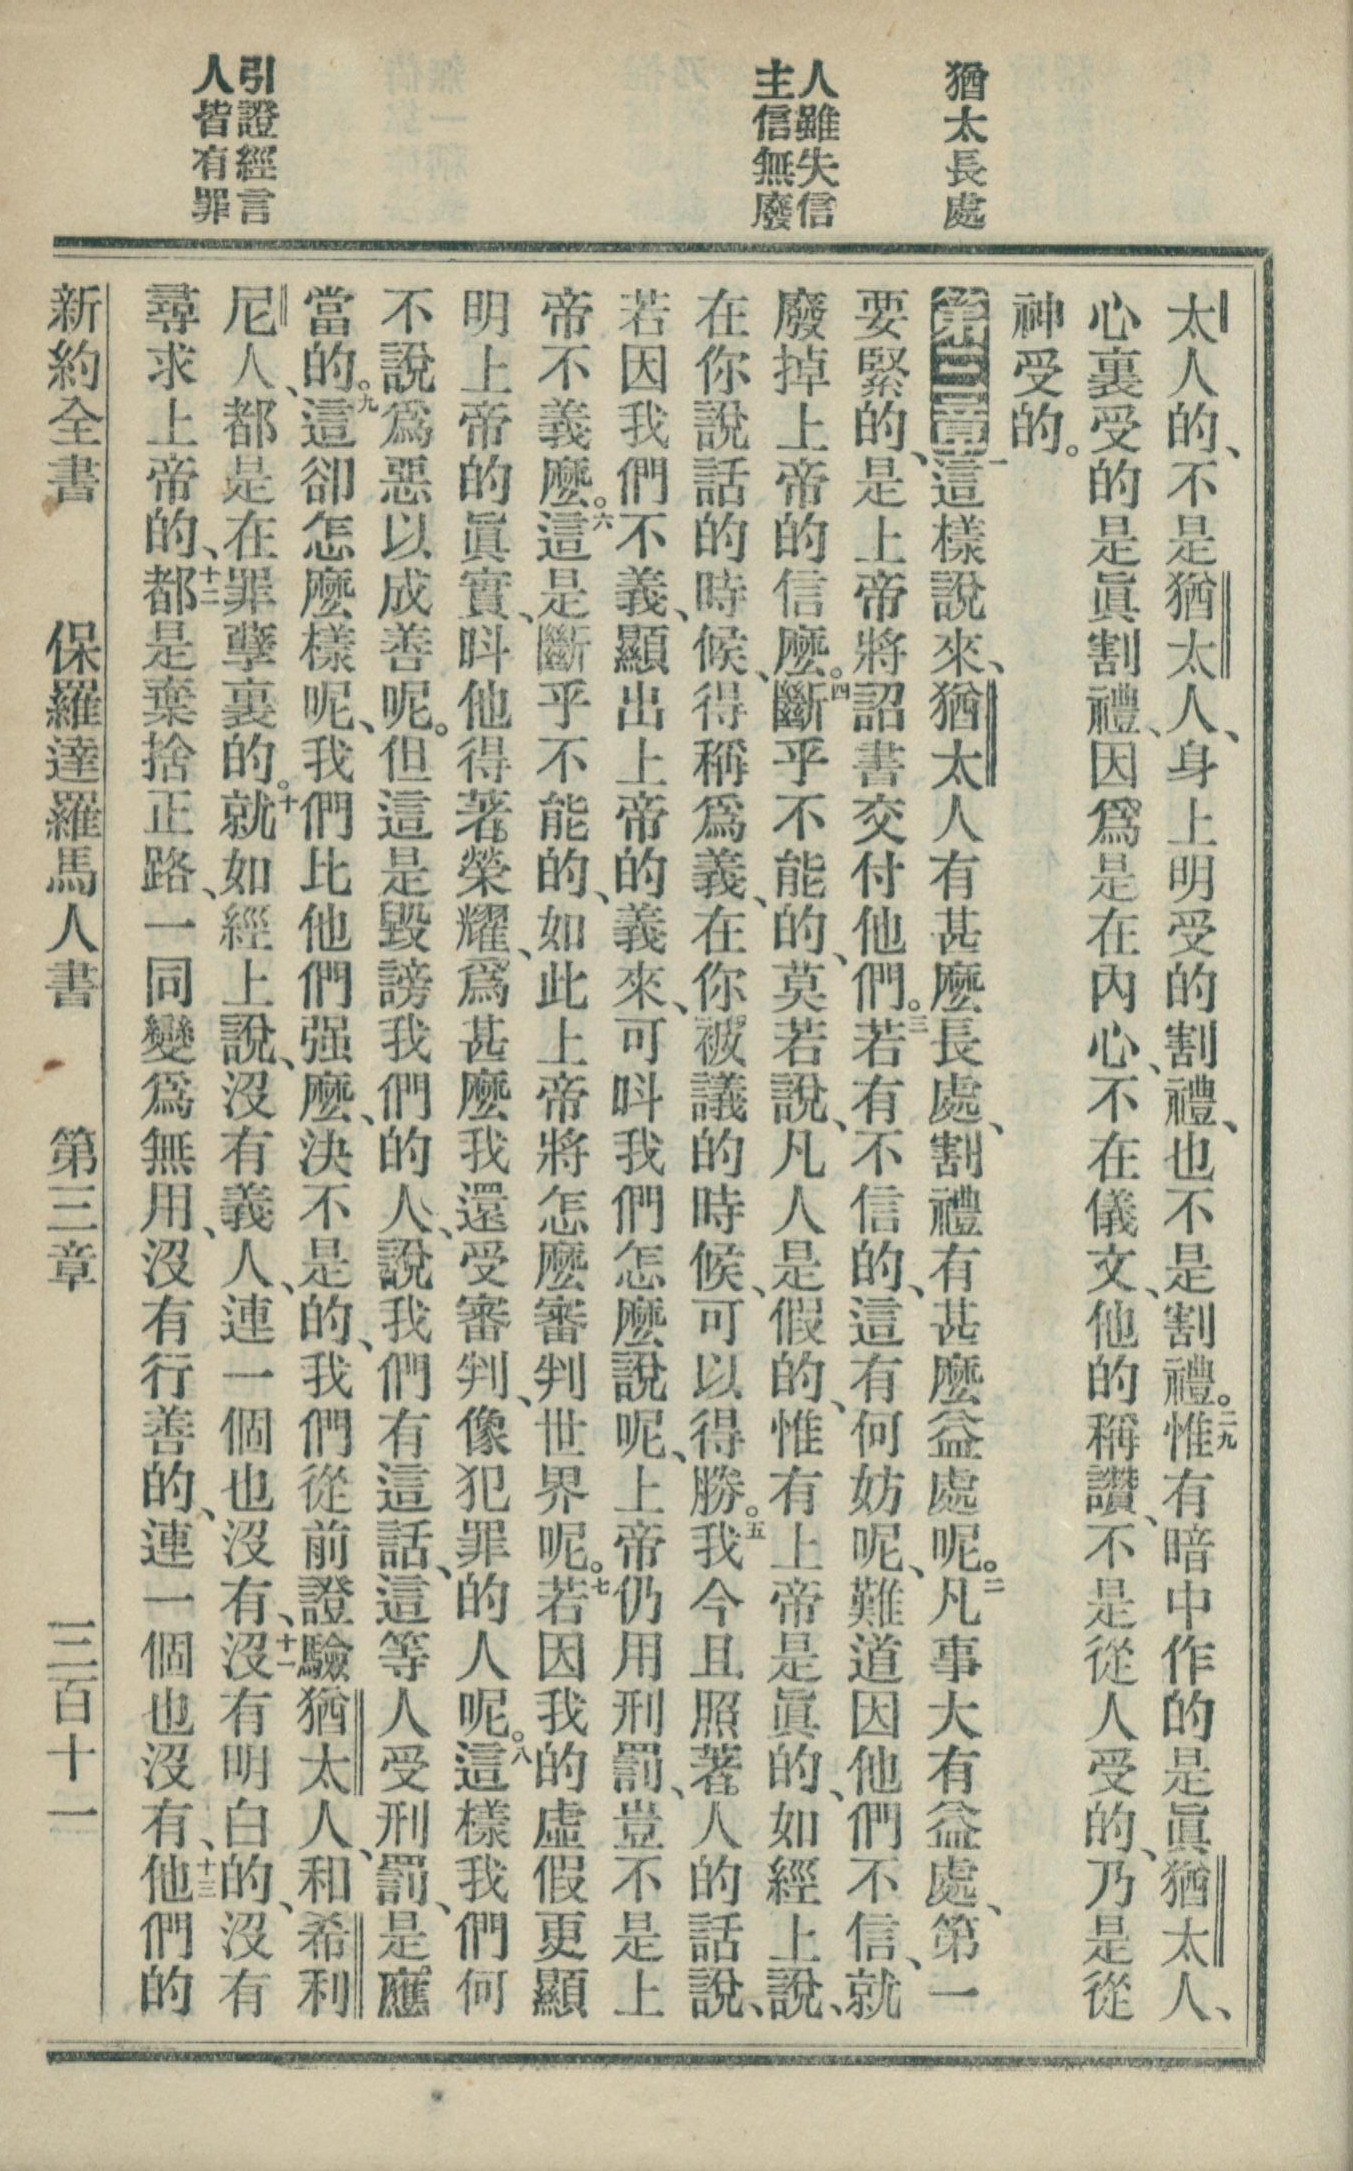 猶太長處
人雖失信
主信無廢
引證經言
人皆有罪
太人的、不是猶太人、身上明受的割禮、也不是割禮。二九惟有暗中作的是眞猶太人、
心裏受的是眞割禮、因爲是在內心、不在儀文、他的稱讚、不是從人受的、乃是從
神受的。
第三章一這樣說來、猶太人有甚麼長處、割禮有甚麼益處呢。二凡事大有益處、第一
要緊的、是上帝將詔書交付他們。三若有不信的、這有何妨呢、難道因他們不信、就
廢掉上帝的信麼。四斷乎不能的、莫若說、凡人是假的、惟有上帝是眞的、如經上說、
在你說話的時候、得稱爲義、在你被議的時候、可以得勝。五我今且照著人的話說、
若因我們不義、顯出上帝的義來、可呌我們怎麼說呢、上帝仍用刑罰、豈不是上
帝不義麼。六這是斷乎不能的、如此上帝將怎麼審判世界呢。七若因我的虛假更顯
明上帝的眞實、呌他得著榮耀、爲甚麼我還受審判、像犯罪的人呢。八這樣我們何
不說爲惡以成善呢。但這是毀謗我們的人、說我們有這話、這等人受刑罰、是應
當的。九這卻怎麼樣呢、我們比他們强麼、決不是的、我們從前證驗猶太人、和希利
尼人、都是在罪孽裏的。十就如經上說、沒有義人、連一個也沒有、十一沒有明白的、沒有
尋求上帝的、十二都是棄捨正路、一同變爲無用、沒有行善的、連一個也沒有、十三他們的
新約全書 保羅達羅馬人書 第三章 三百十一